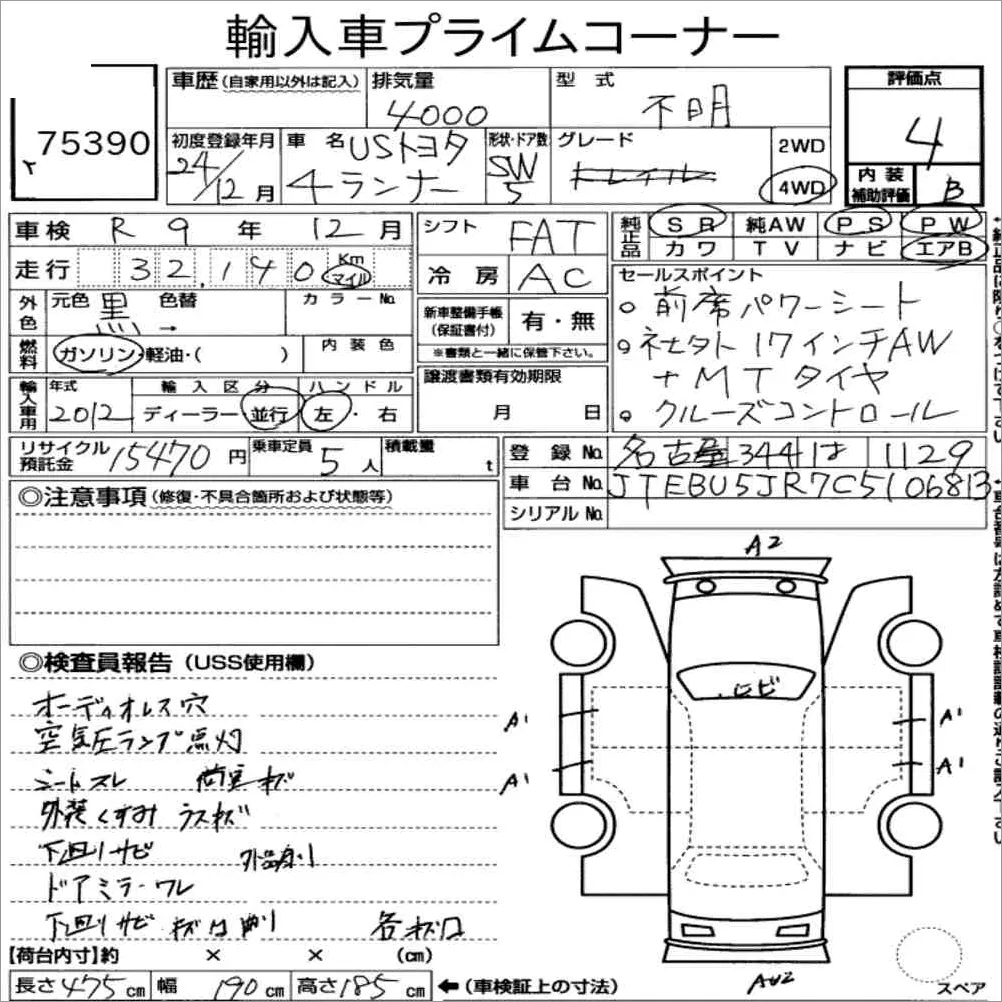 輸入車プライムコーナー
75390
車歴(自家用以外は記入)
排気量
4000
型式
不明
評価点
4
内装
補助評価
B
初度登録年月
24/12月
車名 USトヨタ
4ランナー
形状・ドア数
SW
5
グレード
トレイル
2WD
4WD
車検 R 9 年 12 月
走行 32,140 Km
マイル
シフト FAT
冷房 AC
純正品
SR 純AW PS PW
カワ TV ナビ エアB
外色
元色 黒 色替 →
カラーNo.
燃料
ガソリン・軽油・( )
内装色
新車整備手帳
(保証書付)
有・無
※書類と一緒に保管下さい。
セールスポイント
○ 前席パワーシート
○ 社外17インチAW
+MTタイヤ
○ クルーズコントロール
輸入車用
年式
2012
輸入区分
ディーラー・並行
ハンドル
左・右
譲渡書類有効期限
月 日
リサイクル
預託金
15470円
乗車定員
5人
積載量
t
登録No. 名古屋 344 は 1129
車台No. JTEBU5JR7C5106813
シリアルNo.
◎注意事項(修復・不具合箇所および状態等)
◎検査員報告(USS使用欄)
オーディオレス穴
空気圧ランプ点灯
シートスレ 荷室キズ
外装くすみ ラスキズ
下回りサビ
ドアミラーワレ
下回りサビ
A2
A1
A1
A1
A1
【荷台内寸】約 × × (cm)
長さ475cm 幅190cm 高さ185cm ←(車検証上の寸法)
スペア